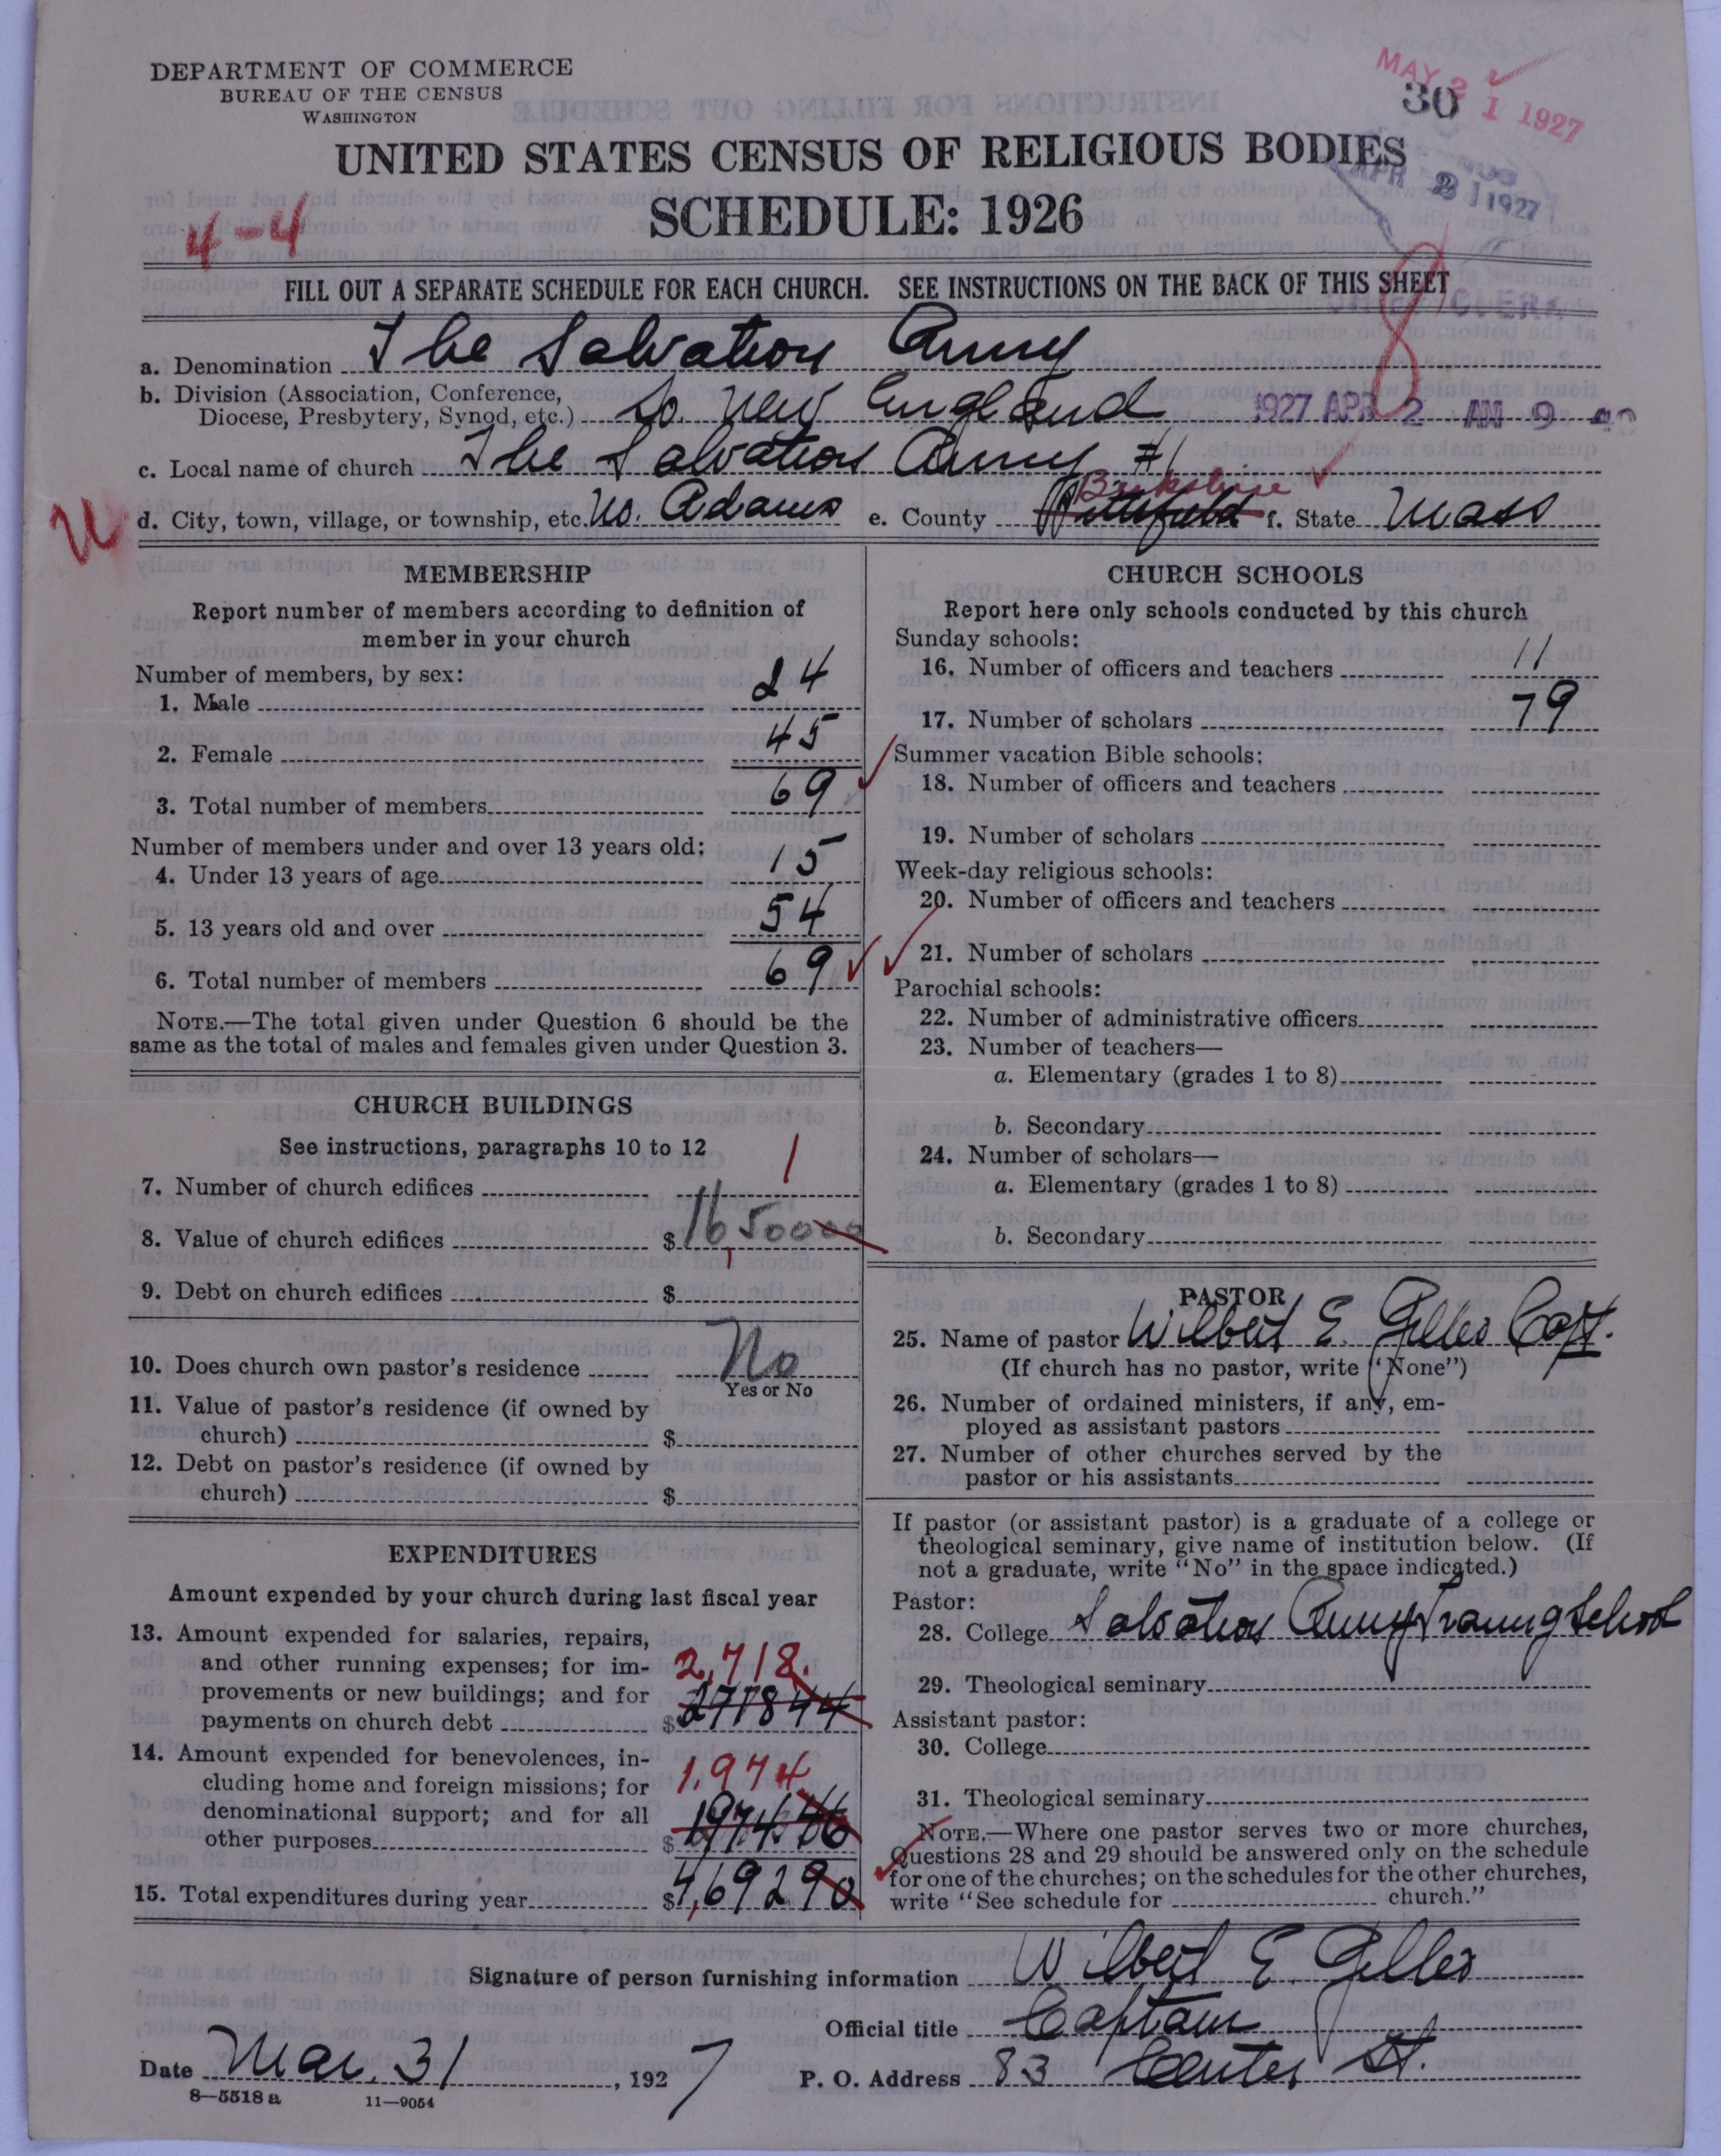 DEPARTMENT OF COMMERCE
BUREAU OF THE CENSUS
WASHINGTON
MAY 21 1927
30
UNITED STATES CENSUS OF RELIGIOUS BODIES
APR 2 1927
SCHEDULE: 1926
4-4
FILL OUT A SEPARATE SCHEDULE FOR EACH CHURCH. SEE INSTRUCTIONS ON THE BACK OF THIS SHEET
8
a. Denomination The Salvation Army
b. Division (Association, Conference,
Diocese, Presbytery, Synod, etc.) So. New England
1927 APR 2 AM 9
c. Local name of church The Salvation Army #1
Berkshire
U d. City, town, village, or township, etc. No. Adams e. County Pittsfield f. State Mass
MEMBERSHIP
Report number of members according to definition of
member in your church
Number of members, by sex:
1. Male 24
2. Female 45
3. Total number of members 69
Number of members under and over 13 years old:
4. Under 13 years of age 15
5. 13 years old and over 54
6. Total number of members 69
NOTE.—The total given under Question 6 should be the
same as the total of males and females given under Question 3.
CHURCH BUILDINGS
See instructions, paragraphs 10 to 12
7. Number of church edifices 1
8. Value of church edifices $16,50000
9. Debt on church edifices $
10. Does church own pastor's residence No
Yes or No
11. Value of pastor's residence (if owned by
church) $
12. Debt on pastor's residence (if owned by
church) $
EXPENDITURES
Amount expended by your church during last fiscal year
13. Amount expended for salaries, repairs,
and other running expenses; for im- 2,718.
provements or new buildings; and for
payments on church debt $271844
14. Amount expended for benevolences, in-
cluding home and foreign missions; for 1,974
denominational support; and for all
other purposes $197446
15. Total expenditures during year $4,69290
CHURCH SCHOOLS
Report here only schools conducted by this church
Sunday schools:
16. Number of officers and teachers 11
17. Number of scholars 79
Summer vacation Bible schools:
18. Number of officers and teachers
19. Number of scholars
Week-day religious schools:
20. Number of officers and teachers
21. Number of scholars
Parochial schools:
22. Number of administrative officers
23. Number of teachers—
a. Elementary (grades 1 to 8)
b. Secondary
24. Number of scholars—
a. Elementary (grades 1 to 8)
b. Secondary
PASTOR
25. Name of pastor Wilbert E. Gilles Capt.
(If church has no pastor, write "None")
26. Number of ordained ministers, if any, em-
ployed as assistant pastors
27. Number of other churches served by the
pastor or his assistants
If pastor (or assistant pastor) is a graduate of a college or
theological seminary, give name of institution below. (If
not a graduate, write "No" in the space indicated.)
Pastor:
28. College Salvation Army Traing School
29. Theological seminary
Assistant pastor:
30. College
31. Theological seminary
NOTE.—Where one pastor serves two or more churches,
Questions 28 and 29 should be answered only on the schedule
for one of the churches; on the schedules for the other churches,
write "See schedule for church."
Signature of person furnishing information Wilbert E. Gilles
Official title Captain
Date Mar. 31, 1927
P. O. Address 83 Center St.
8—5518 a 11—9054